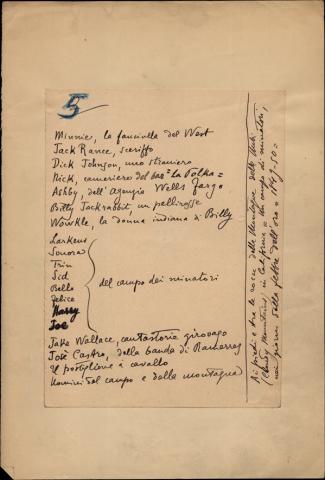 5
Minnie, la fanciulla del West
Jack Rance, sceriffo
Dick Johnson, uno straniero
Nick, cameriere del bar "La Polka"
Ashby, dell'agenzia Wells Fargo
Billy Jackrabbit, un pellirosse
Wowkle, la donna indiana di Billy
Larkens
Sonora
Trin
Sid
Bello
Felice
Harry
Joe
del campo dei minatori
Jake Wallace, cantastorie girovago
José Castro, della banda di Ramerrez
Il postiglione a cavallo
Uomini del campo e della montagna
Ai piedi e tra le
(Cloudy Mountains) in California = Un campo di minatori,
nei giorni della febbre dell'oro = 1849-50 =